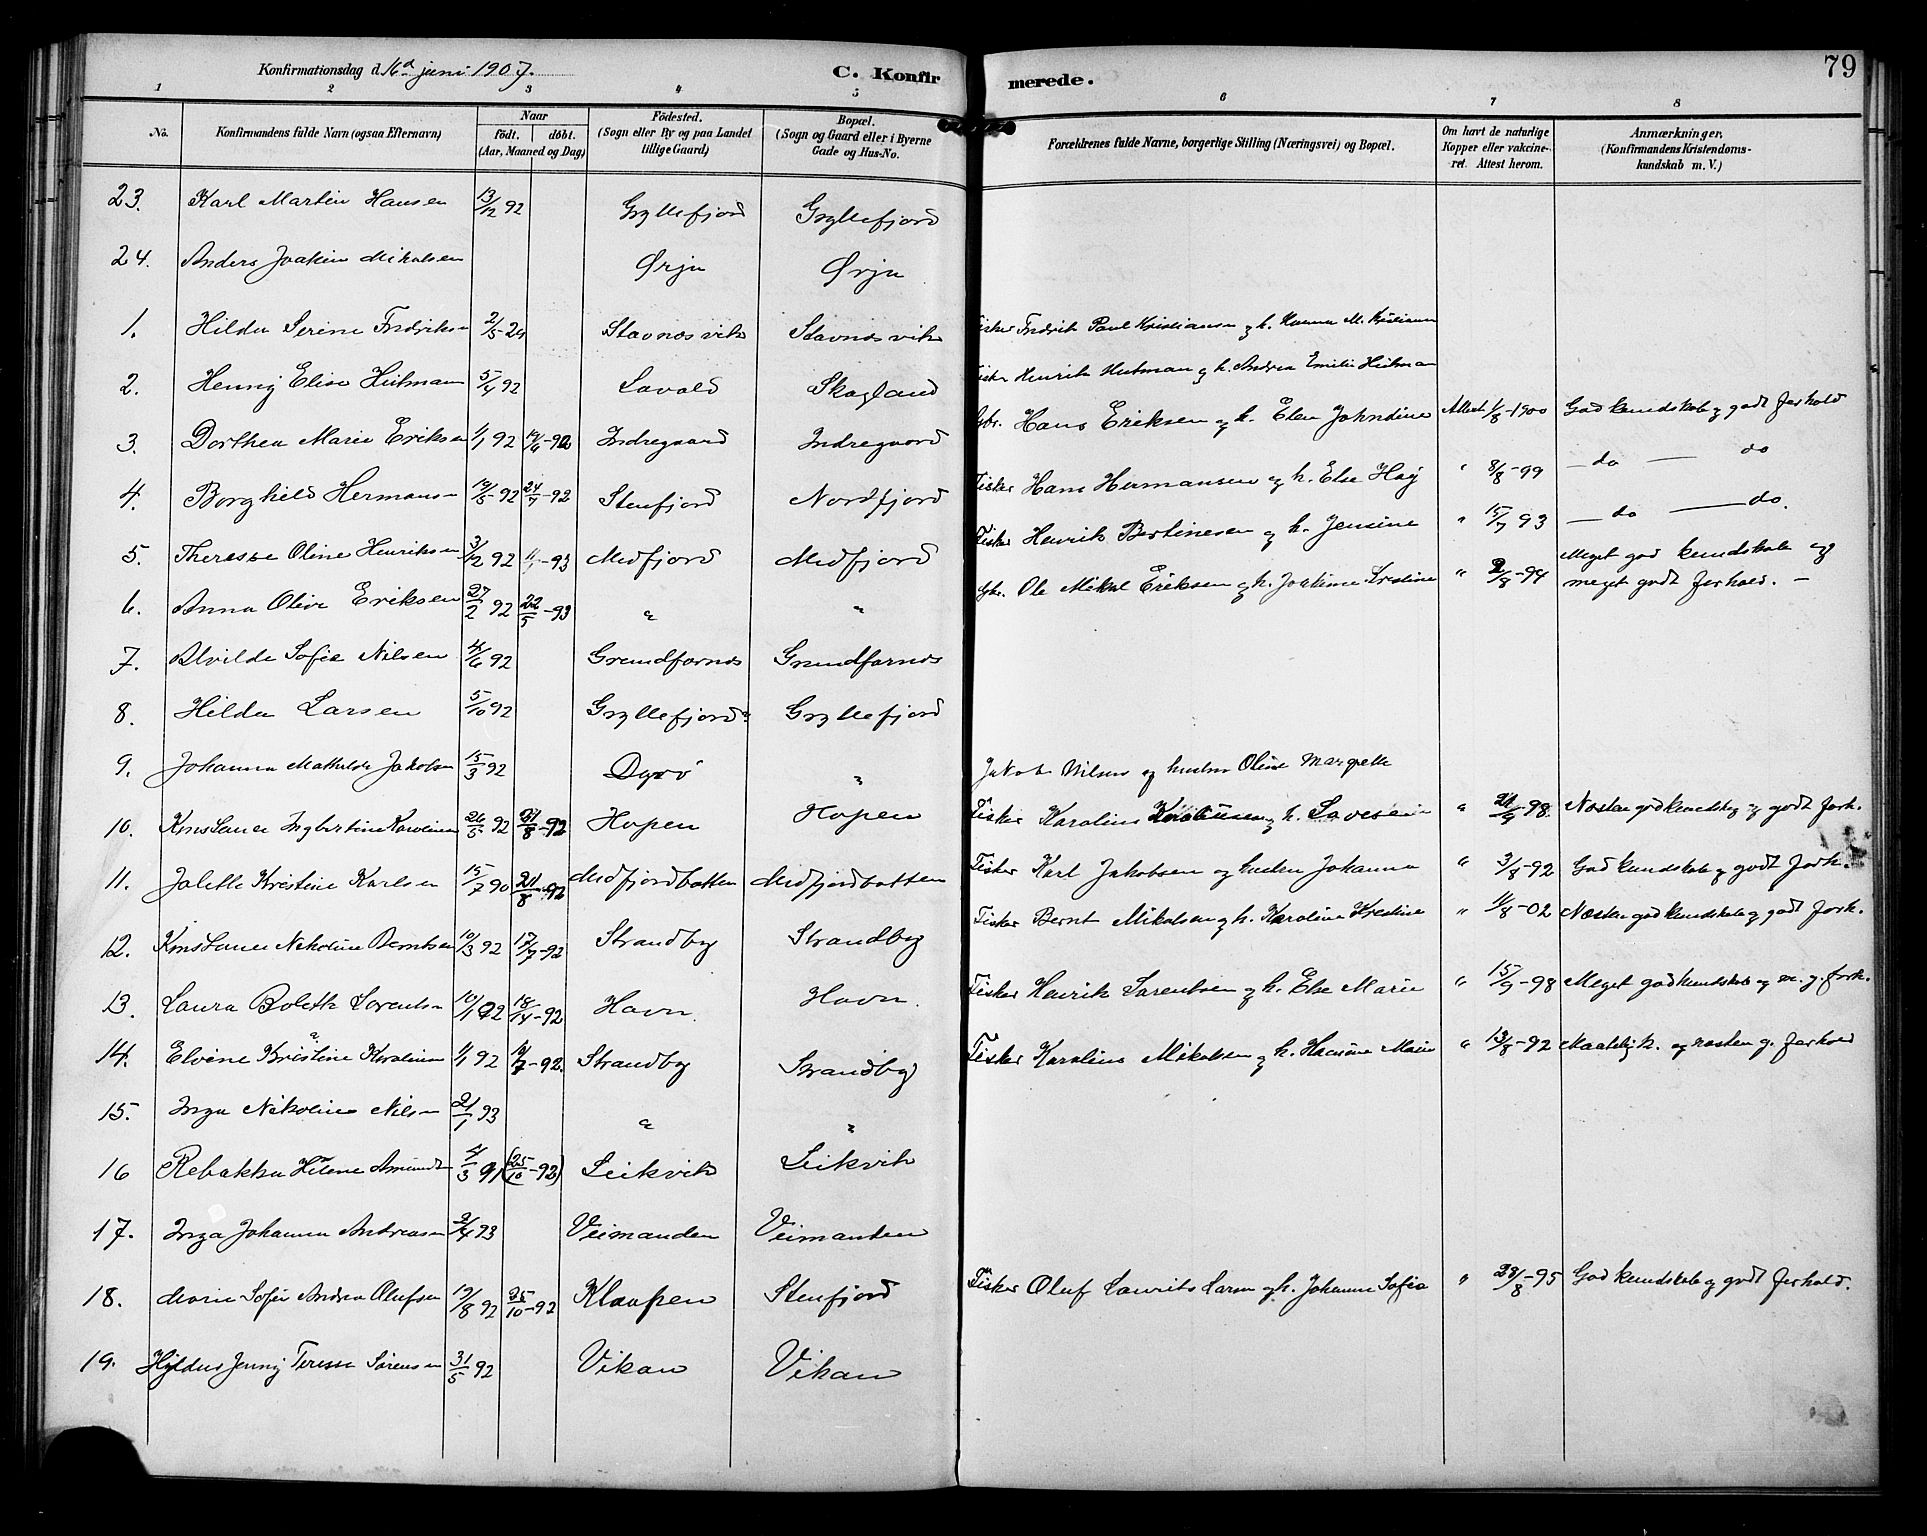 79
Konfirmationsdag d. 16d juni 1907.
C. Konfirmerede.
1 2 3 4 5 6 7 8
No. Konfirmandens fulde Navn (ogsaa Efternavn) Naar födt. döbt. (Aar, Maaned og Dag) Födested. (Sogn eller By og paa Landet tillige Gaard) Bopæl. (Sogn og Gaard eller i Byerne Gade og Hus-No. Forældrenes fulde Navne, borgerlige Stilling (Næringsvei) og Bopæl. Om havt de naturlige Kopper eller vakcineret. Attest herom. Anmærkninger. (Konfirmandens Kristendomskundskab m. V.)
23. Karl Martin Hansen 13/12 92 Gryllefjord Gryllefjord
24. Anders Joakim Mikalsen Ørja Ørja
1. Hilda Serine Fredriks Stavnesvik Stavnesvik Fisker Fredrik Paul Kristiansen og h. Hanna M. Kristiansen
2. Henny Elise Heitman 5/4 92 Lavold Skagland Fisker Henrik Heitman og h. Andrea Emilie Heitman
3. Dorthea Marie Eriksen 1/1 92 Indregaard Indregaard Gbr. Hans Eriksen og h. Elen Johndine Attest 1/8-1900 God kundskab og godt forhold
4. Borghild Hermans 92 24/7-92 Stenfjord Nordfjord Fisker Hans Hermansen og h. Else Høj " 8/8-99 — do — do
5. Therese Oline Henriksen 3/12 92 Medfjord Medfjord Fisker Henrik Bertinesen og h. Jensine " 15/7 93 — do — do.
6. Anna Olive Eriksen 27/2 92 22/5-93 " " Gbr. Ole Mikal Eriksen og h. Joakime Kristine " 2/8-94 Meget god kundskab og meget godt forhold. —
7. Alvilde Sofie Nilsen 4/6 92 Grundfarnes Grundfarnes
8. Hilda Larsen 5/10 92 Gryllefjord Gryllefjord
9. Johanna Mathilde Jakobsen 15/3 92 Dyrö " Jakob Nilsen og hustru Oline Margrethe
10. Konstanse Ingbertine Karolines 26/5 92 31/8-92 Hopen Hopen Fisker Karolius og h. Lovise " 98 Næsten god kundskab og godt forh.
11. Jolette Kristine Karlsen 15/7 90 21/8-92 Medfjordbotten Medfjordbotten Fisker Karl Jakobsen og hustru Johanna " 3/8-92 God kundskab og godt forh.
12. Konstanse Nikoline Berntsen 10/3 92 17/7-92 Strandby Strandby Fisker Bernt Mikalsen og h. Karoline Kristine " 4/8-02 Næsten god kundskab og godt forh.
13. Laura Bolette Sorents 10/1 92 18/4-92 Havn. Havn. Fisker Henrik Sorentsen og h. Else Marie " 15/9-98 Meget god kundskab og m. g. forh.
14. Elvine Kristine Karolius 1/1 92 92. Strandby Strandby Fisker Karolius Mikalsen og h. Hansine Marie " 13/8-92 Maadelig k. og næsten g. forhold
15. Inga Nikoline Nils 21/1 93 " "
16 Rebakka Helene Amundt 4/3 91 (25/10-92) Leikvik Leikvik
17. Inga Johanna Andreasen 2/4 93 Veimanden Veimanden
18. Marie Sofie Andrea Olufsen 19/8 92 25/10-92 Klaapen Stenfjord Fisker Oluf Laurits Larsen og h. Johanna Sofie " 23/8-95 God kundskab og godt forhold.
19. Hyldus Jenny Teresse Sörensen 31/5 92 Vikan Vikan